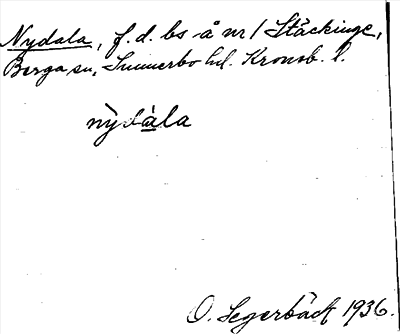 Nydala, f.d. bs å nr 1 Stäckinge,
Berga sn, Sunnerbo hd. Kronob. l.
nỳdála
O. Segerbäck 1936.